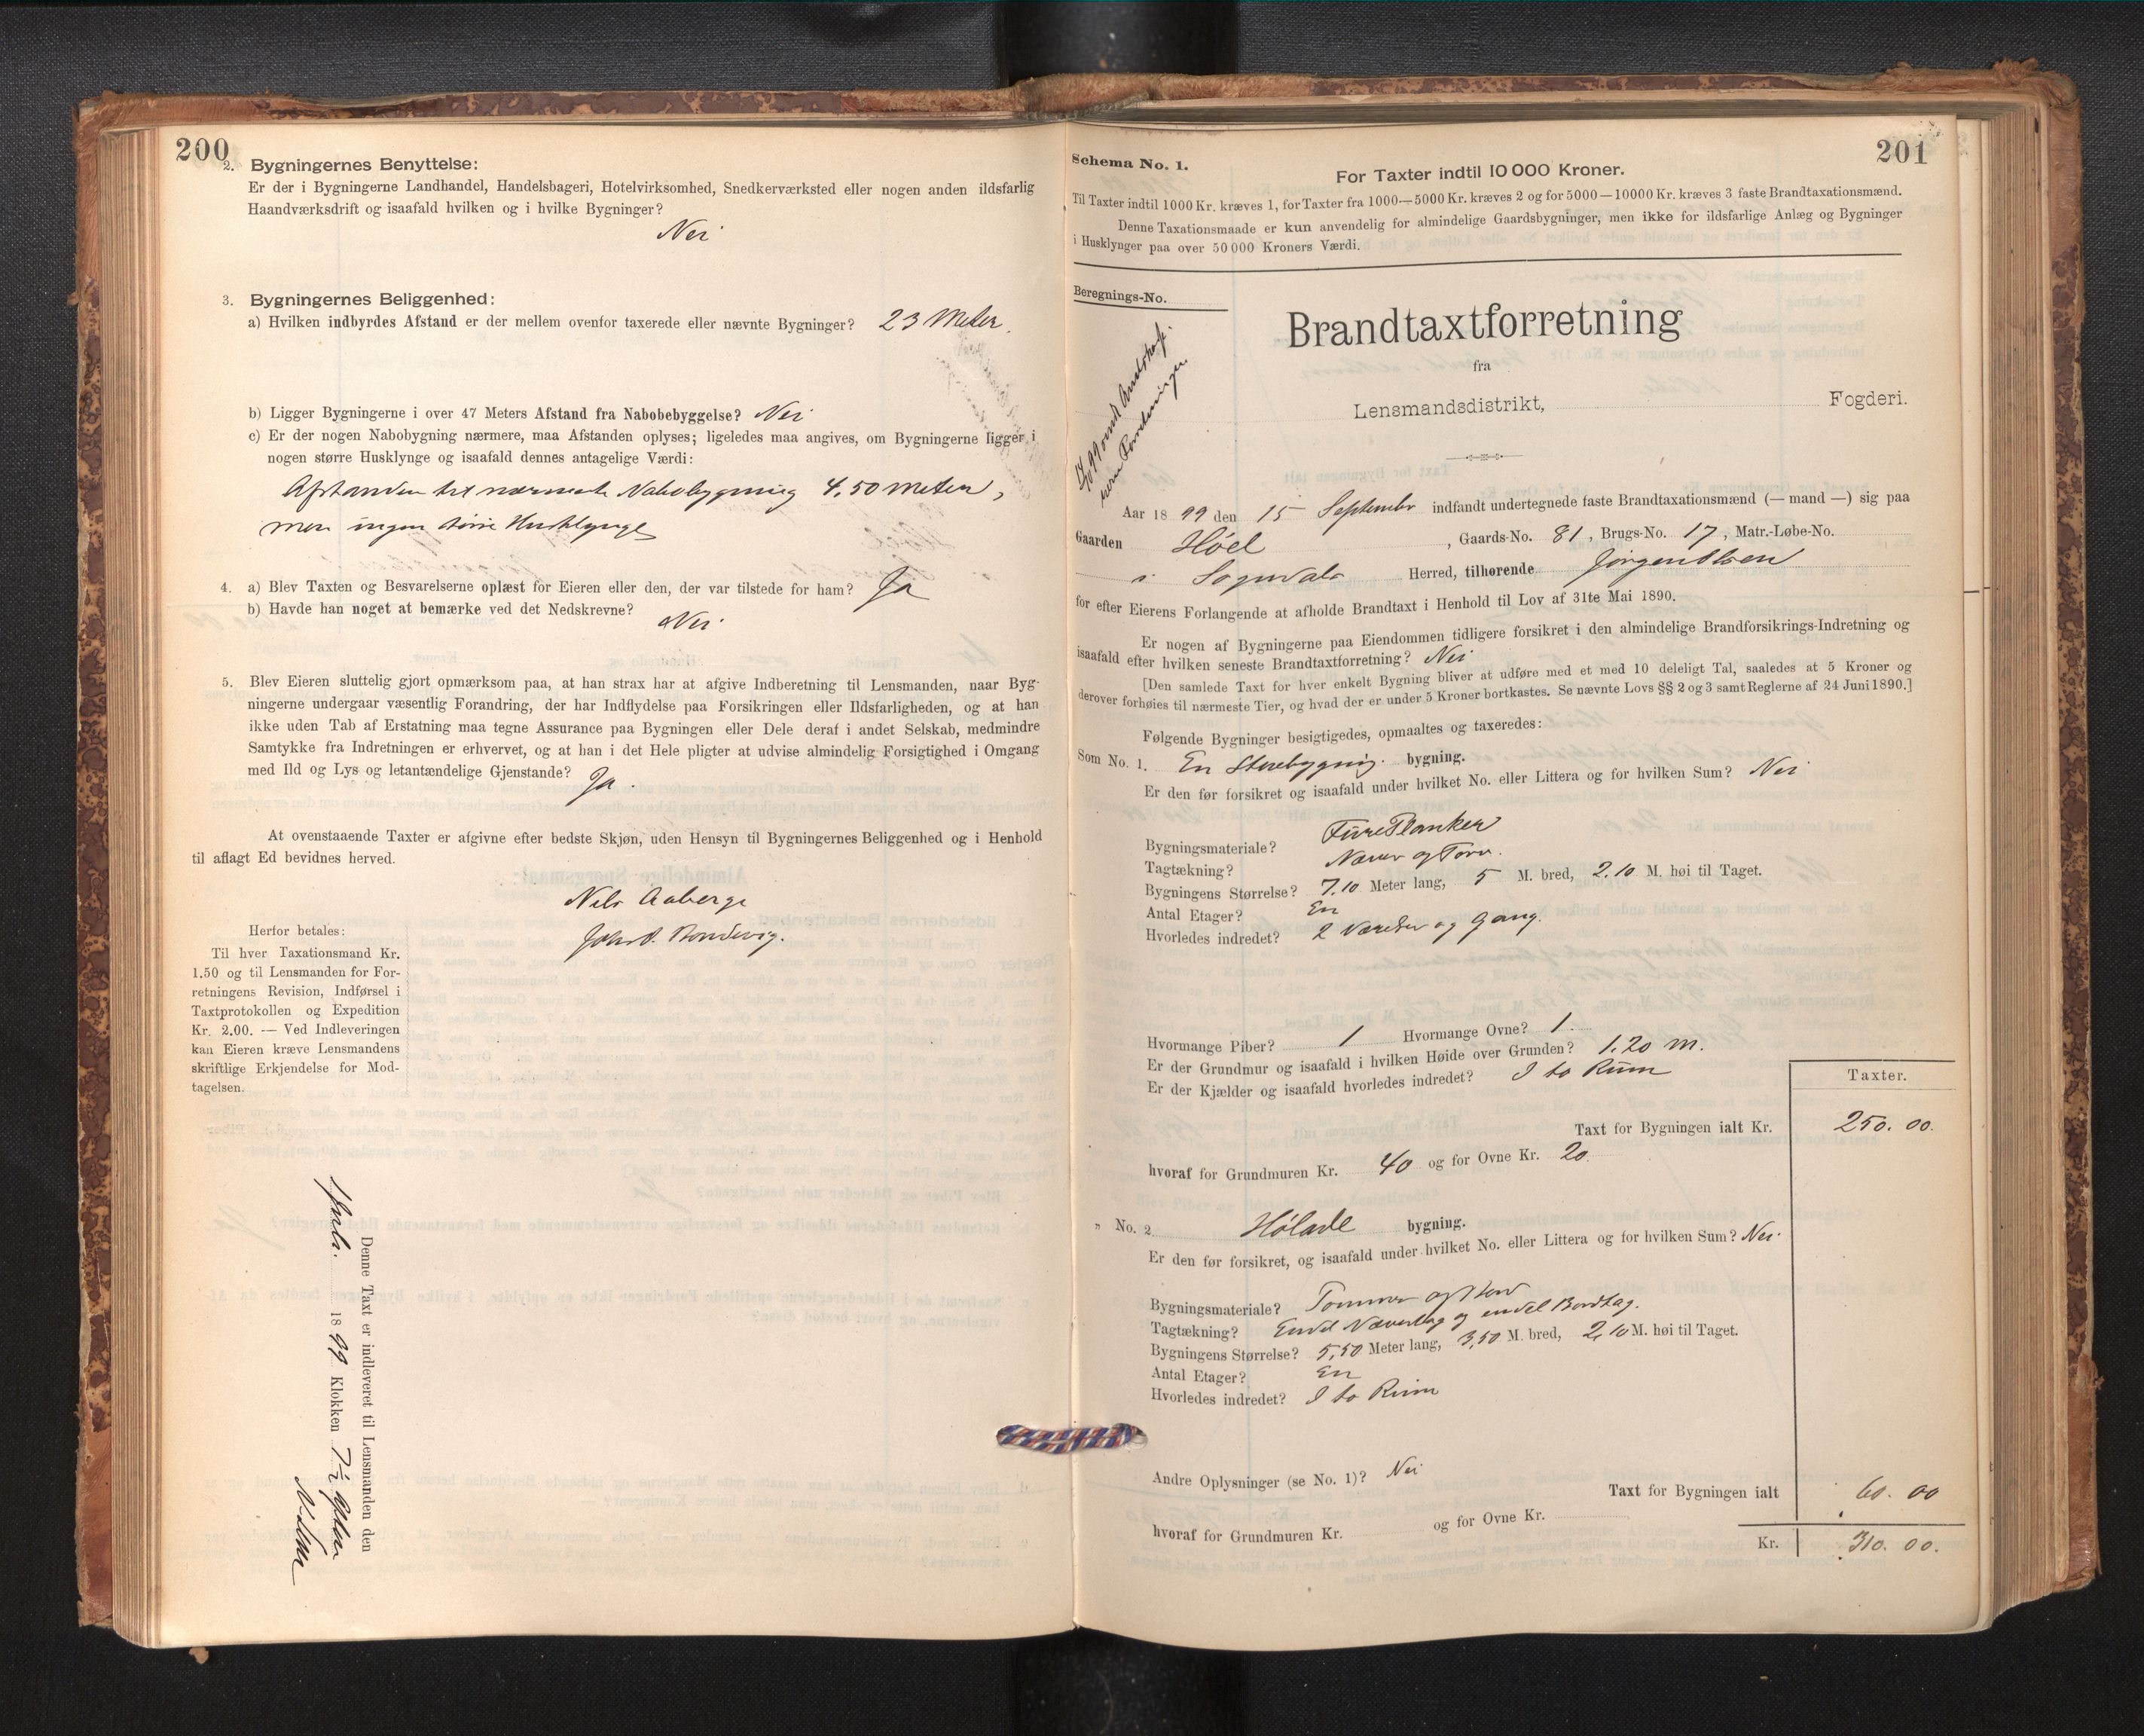 200
2. Bygningernes Benyttelse:
Er der i Bygningerne Landhandel, Handelsbageri, Hotelvirksomhed, Snedkerværksted eller nogen anden ildsfarlig
Haandværksdrift og isaafald hvilken og i hvilke Bygninger?
Nei
3. Bygningernes Beliggenhed:
a) Hvilken indbyrdes Afstand er der mellem ovenfor taxerede eller nævnte Bygninger? 23 Meter.
b) Ligger Bygningerne i over 47 Meters Afstand fra Nabobebyggelse? Nei
c) Er der nogen Nabobygning nærmere, maa Afstanden oplyses; ligeledes maa angives, om Bygningerne ligger i
nogen større Husklynge og isaafald dennes antagelige Værdi:
Afstanden til nærmeste Nabobygning 4.50 meter,
men ingen større Husklynge
4. a) Blev Taxten og Besvarelserne oplæst for Eieren eller den, der var tilstede for ham? Ja
b) Havde han noget at bemærke ved det Nedskrevne?
Nei.
5. Blev Eieren sluttelig gjort opmærksom paa, at han strax har at afgive Indberetning til Lensmanden, naar Byg-
ningerne undergaar væsentlig Forandring, der har Indflydelse paa Forsikringen eller Ildsfarligheden, og at han
ikke uden Tab af Erstatning maa tegne Assurance paa Bygningen eller Dele deraf i andet Selskab, medmindre
Samtykke fra Indretningen er erhvervet, og at han i det Hele pligter at udvise almindelig Forsigtighed i Omgang
med Ild og Lys og letantændelige Gjenstande? Ja.
At ovenstaaende Taxter er afgivne efter bedste Skjøn, uden Hensyn til Bygningernes Beliggenhed og i Henhold
til aflagt Ed bevidnes herved.
Nils Aaberge
Herfor betales:
Til hver Taxationsmand Kr.
1.50 og til Lensmanden for For-
retningens Revision, Indførsel i
Taxtprotokollen og Expedition
Kr. 2.00. — Ved Indleveringen
kan Eieren kræve Lensmandens
skriftlige Erkjendelse for Mod-
tagelsen.
Denne Taxt er indleveret til Lensmanden den
1899 Klokken 7½
201
Schema No. 1.
For Taxter indtil 10 000 Kroner.
Til Taxter indtil 1000 Kr. kræves 1, for Taxter fra 1000—5000 Kr. kræves 2 og for 5000—10000 Kr. kræves 3 faste Brandtaxationsmænd.
Denne Taxationsmaade er kun anvendelig for almindelige Gaardsbygninger, men ikke for ildsfarlige Anlæg og Bygninger
i Husklynger paa over 50 000 Kroners Værdi.
Beregnings-No.
Brandtaxtforretning
fra
Lensmandsdistrikt, Fogderi.
Aar 1899 den 15 September indfandt undertegnede faste Brandtaxationsmænd (— mand —) sig paa
Gaarden Høel, Gaards-No. 81, Brugs-No. 17, Matr.-Løbe-No.
i Sogndals Herred, tilhørende Jørgen Olsen
for efter Eierens Forlangende at afholde Brandtaxt i Henhold til Lov af 31te Mai 1890.
Er nogen af Bygningerne paa Eiendommen tidligere forsikret i den almindelige Brandforsikrings-Indretning og
isaafald efter hvilken seneste Brandtaxtforretning? Nei
[Den samlede Taxt for hver enkelt Bygning bliver at udføre med et med 10 deleligt Tal, saaledes at 5 Kroner og
derover forhøies til nærmeste Tier, og hvad der er under 5 Kroner bortkastes. Se nævnte Lovs §§ 2 og 3 samt Reglerne af 24 Juni 1890.]
Følgende Bygninger besigtigedes, opmaaltes og taxeredes:
Som No. 1. En Stuebygnig. bygning.
Er den før forsikret og isaafald under hvilket No. eller Littera og for hvilken Sum? Nei
Bygningsmateriale? Fure Planker
Tagtækning? Næver og Torv.
Bygningens Størrelse? 7.10 Meter lang, 5 M. bred, 2.10 M. høi til Taget.
Antal Etager? En
Hvorledes indredet? 2 Værelser og Gang.
Hvormange Piber? 1 Hvormange Ovne? 1.
Er der Grundmur og isaafald i hvilken Høide over Grunden? 1.20 m.
Er der Kjælder og isaafald hvorledes indredet? I to Rum
Taxter.
Taxt for Bygningen ialt Kr. 250. 00.
hvoraf for Grundmuren Kr. 40 og for Ovne Kr. 20.
" No. 2. Hølade bygning.
Er den før forsikret, og isaafald under hvilket No. eller Littera og for hvilken Sum? Nei.
Bygningsmateriale? Tømmer og Bord
Tagtækning? Endel Nævertag og endel Bordtag.
Bygningens Størrelse? 5,50 Meter lang, 3,50 M. bred, 2,10 M. høi til Taget.
Antal Etager? En
Hvorledes indredet? I to Rum
Andre Oplysninger (se No. 1)? Nei
Taxt for Bygningen ialt 60. 00
hvoraf for Grundmuren Kr. og for Ovne Kr.
Kr. 310. 00.